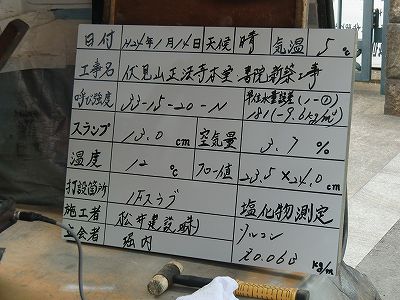 日付 H24年1月14日 天候 晴 気温 5℃
工事名 伏見山正法手水室 書院新築工事
呼び強度 33-15-20-N 単位水量誤差(1-②)
181(-9.6kg/m³)
スランプ 13.0 cm 空気量 3.7 %
温度 12 ℃ フロー値 23.5×24.0 cm
打設箇所 1Fスラブ 塩化物測定
施工者 松井建設(株) ソルコン
立会者 堀内 20.06 kg/m³